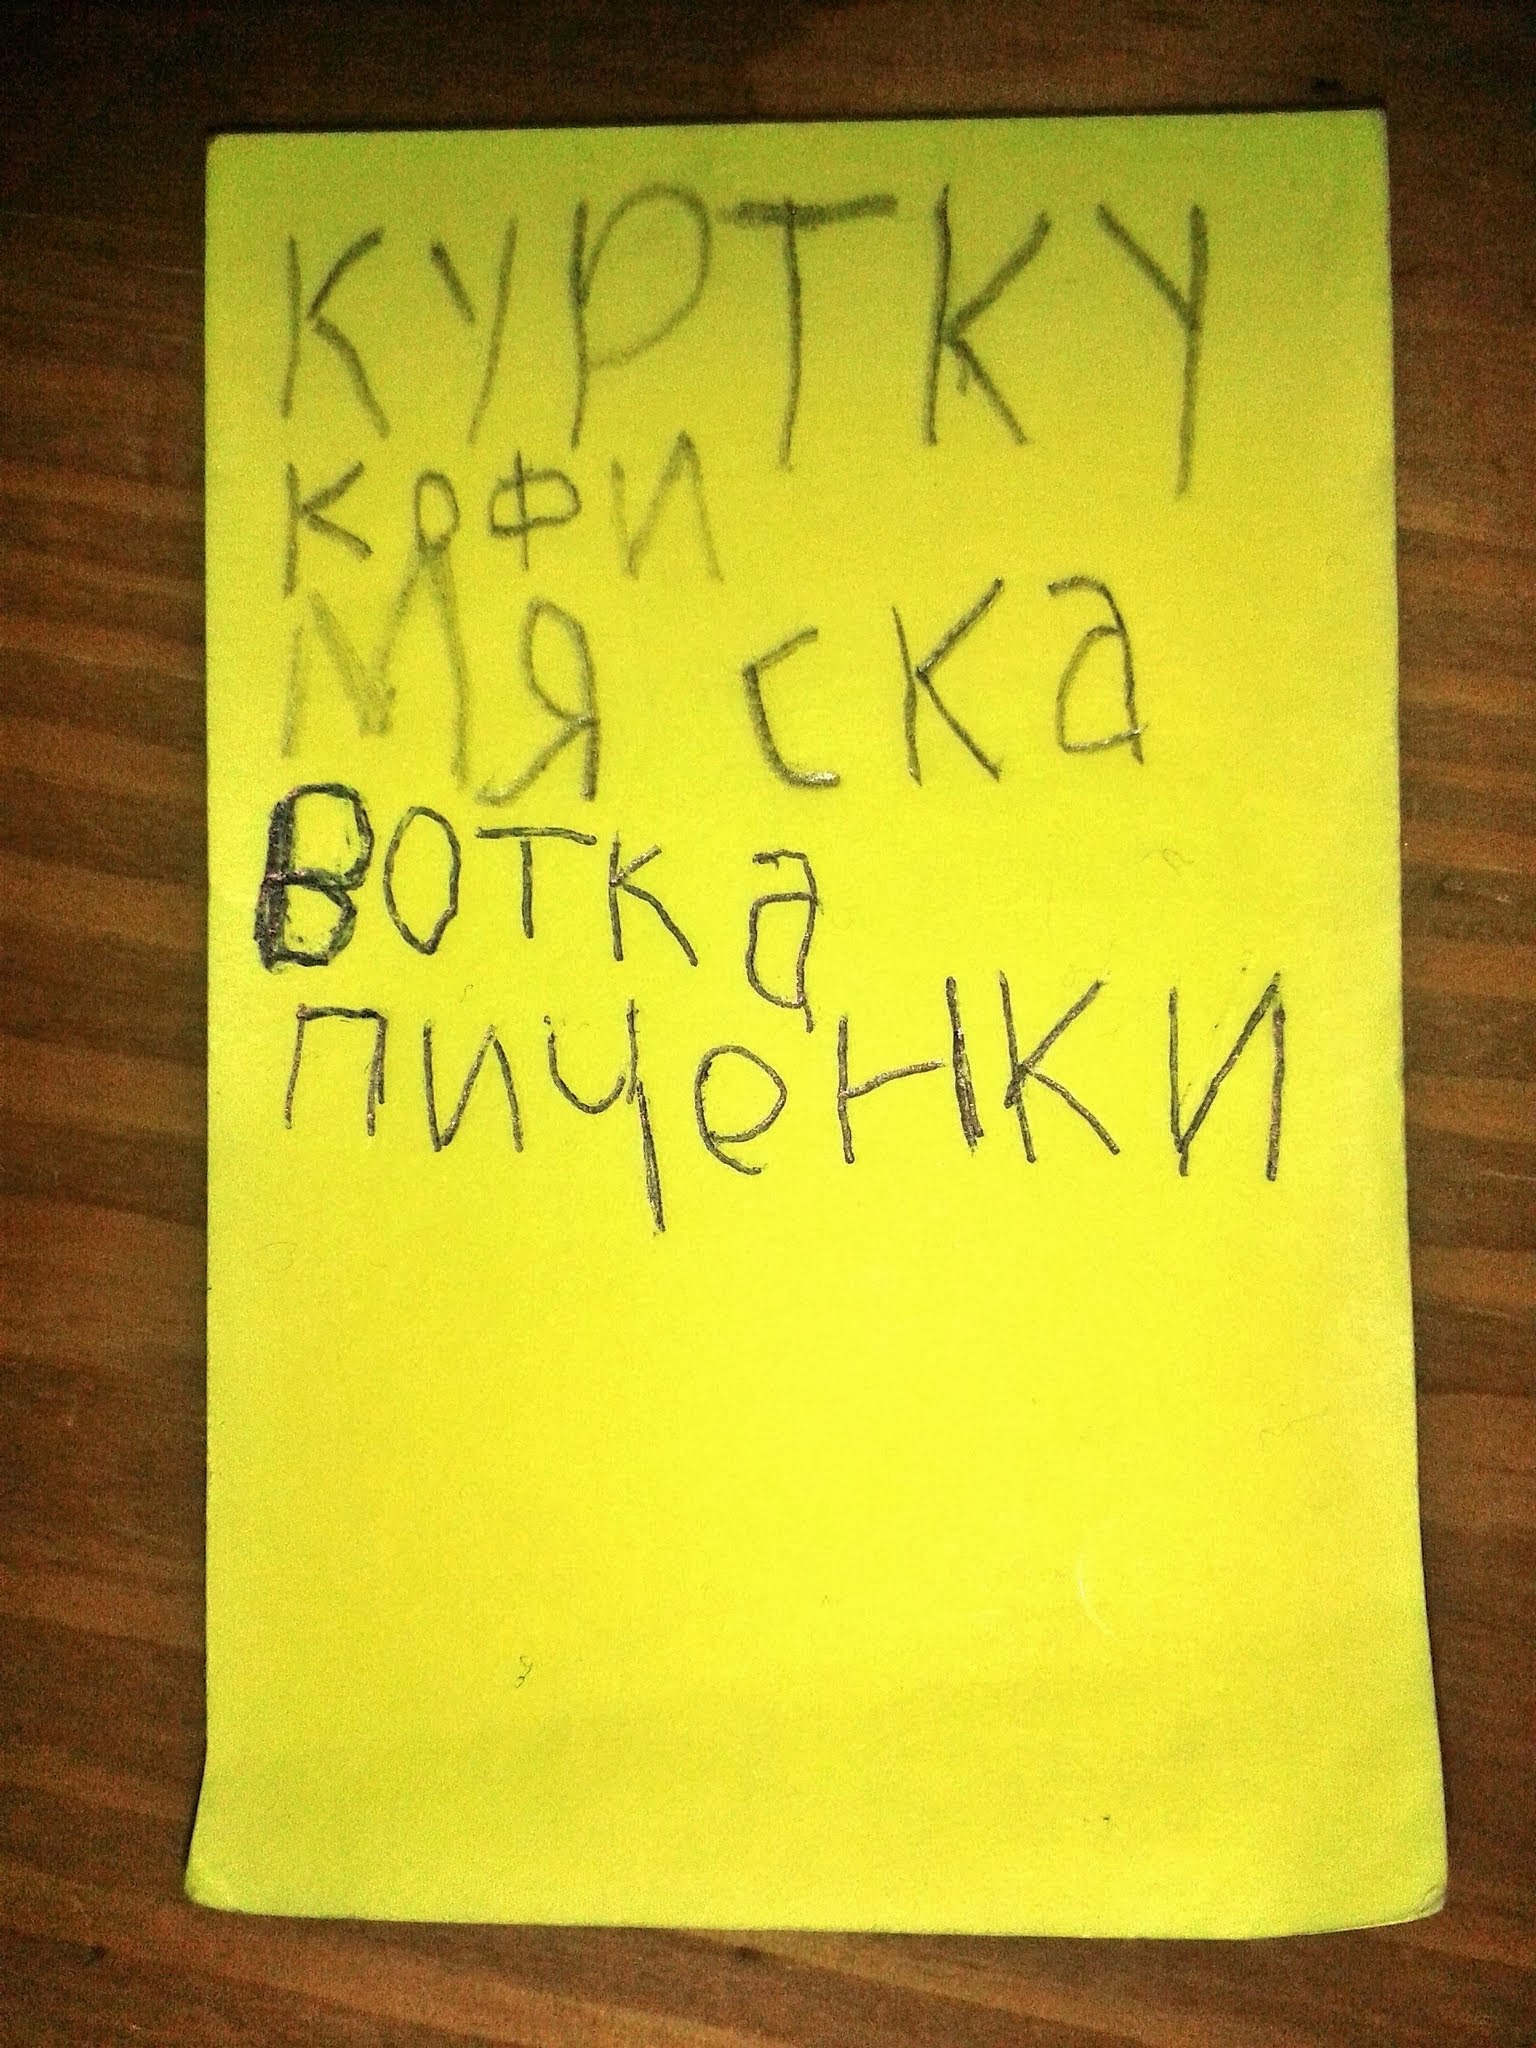 КУРТКУ
КОФИ
МЯ СКА
ВОТКа
ПИЧеНКИ